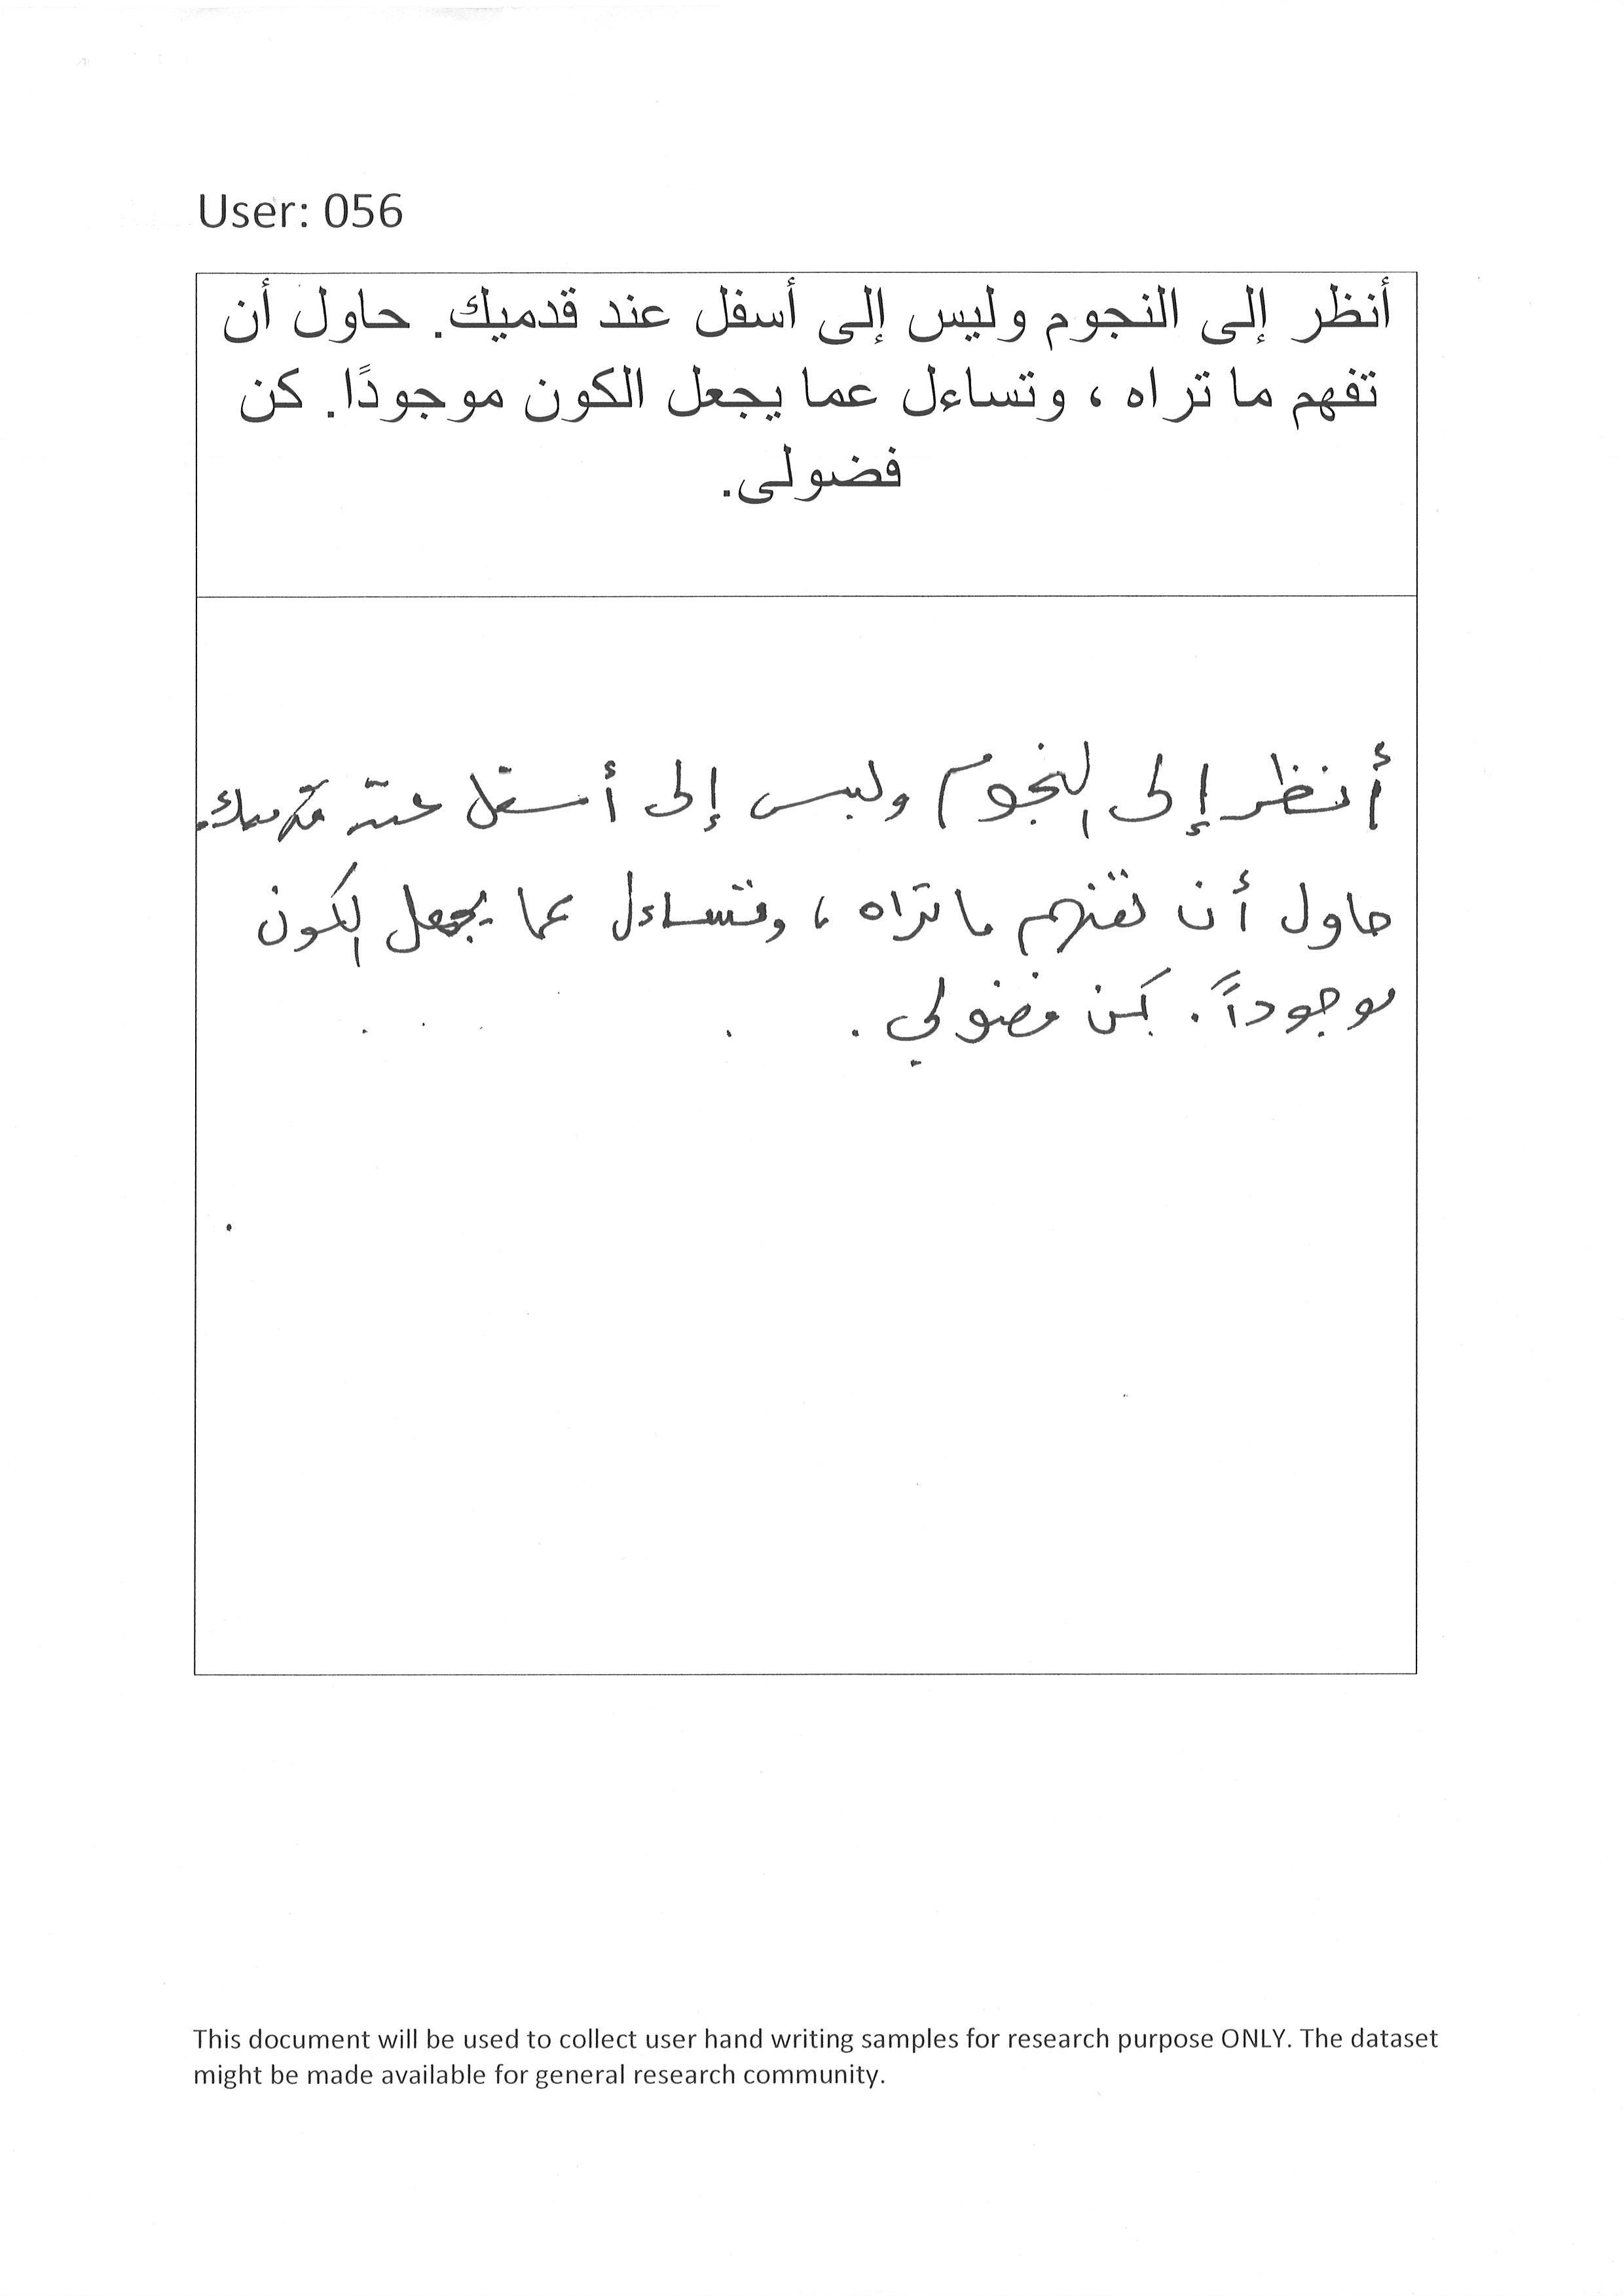 User: 056
أنظر إلى النجوم وليس إلى أسفل عند قدميك. حاول أن
تفهم ما تراه ، وتساءل عما يجعل الكون موجودًا. كن
فضولى.
أنظر إلى النجوم وليس إلى أسفل عند قدميك.
حاول أن تفهم ما تراه ، وتساءل عما يجعل الكون
موجوداً. كن فضولي .
This document will be used to collect user hand writing samples for research purpose ONLY. The dataset
might be made available for general research community.